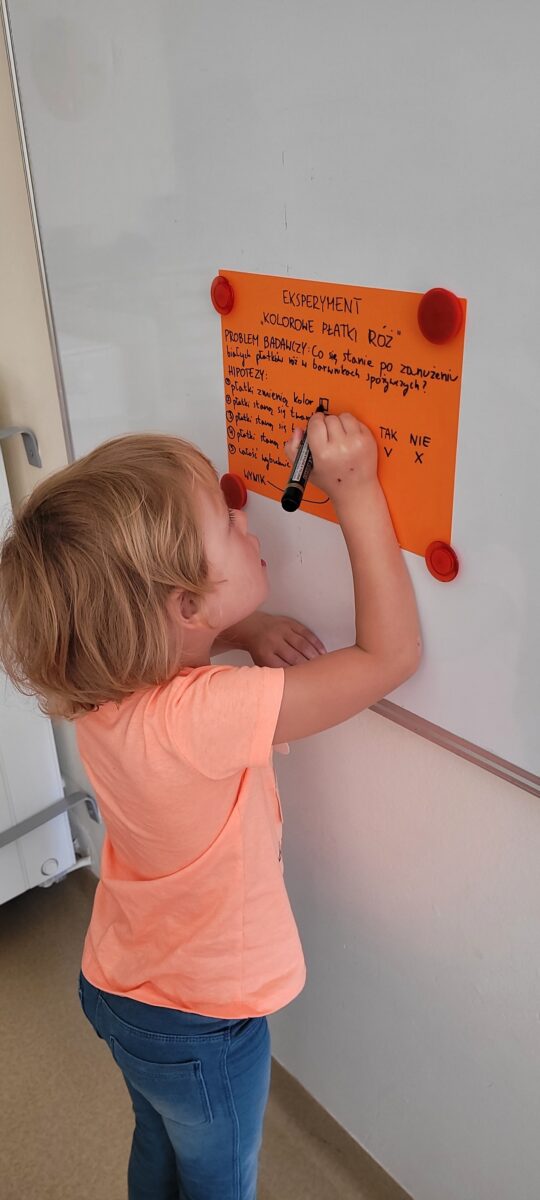 EKSPERYMENT
„KOLOROWE PŁATKI RÓŻ"
PROBLEM BADAWCZY: Co się stanie po zanużeniu
białych płatków róż w barwnikach spożywczych?
HIPOTEZY:
① płatki zmienią kolor
② płatki staną się
③ płatki staną się
④ płatki staną
⑤
TAK NIE
V X
WYNIK